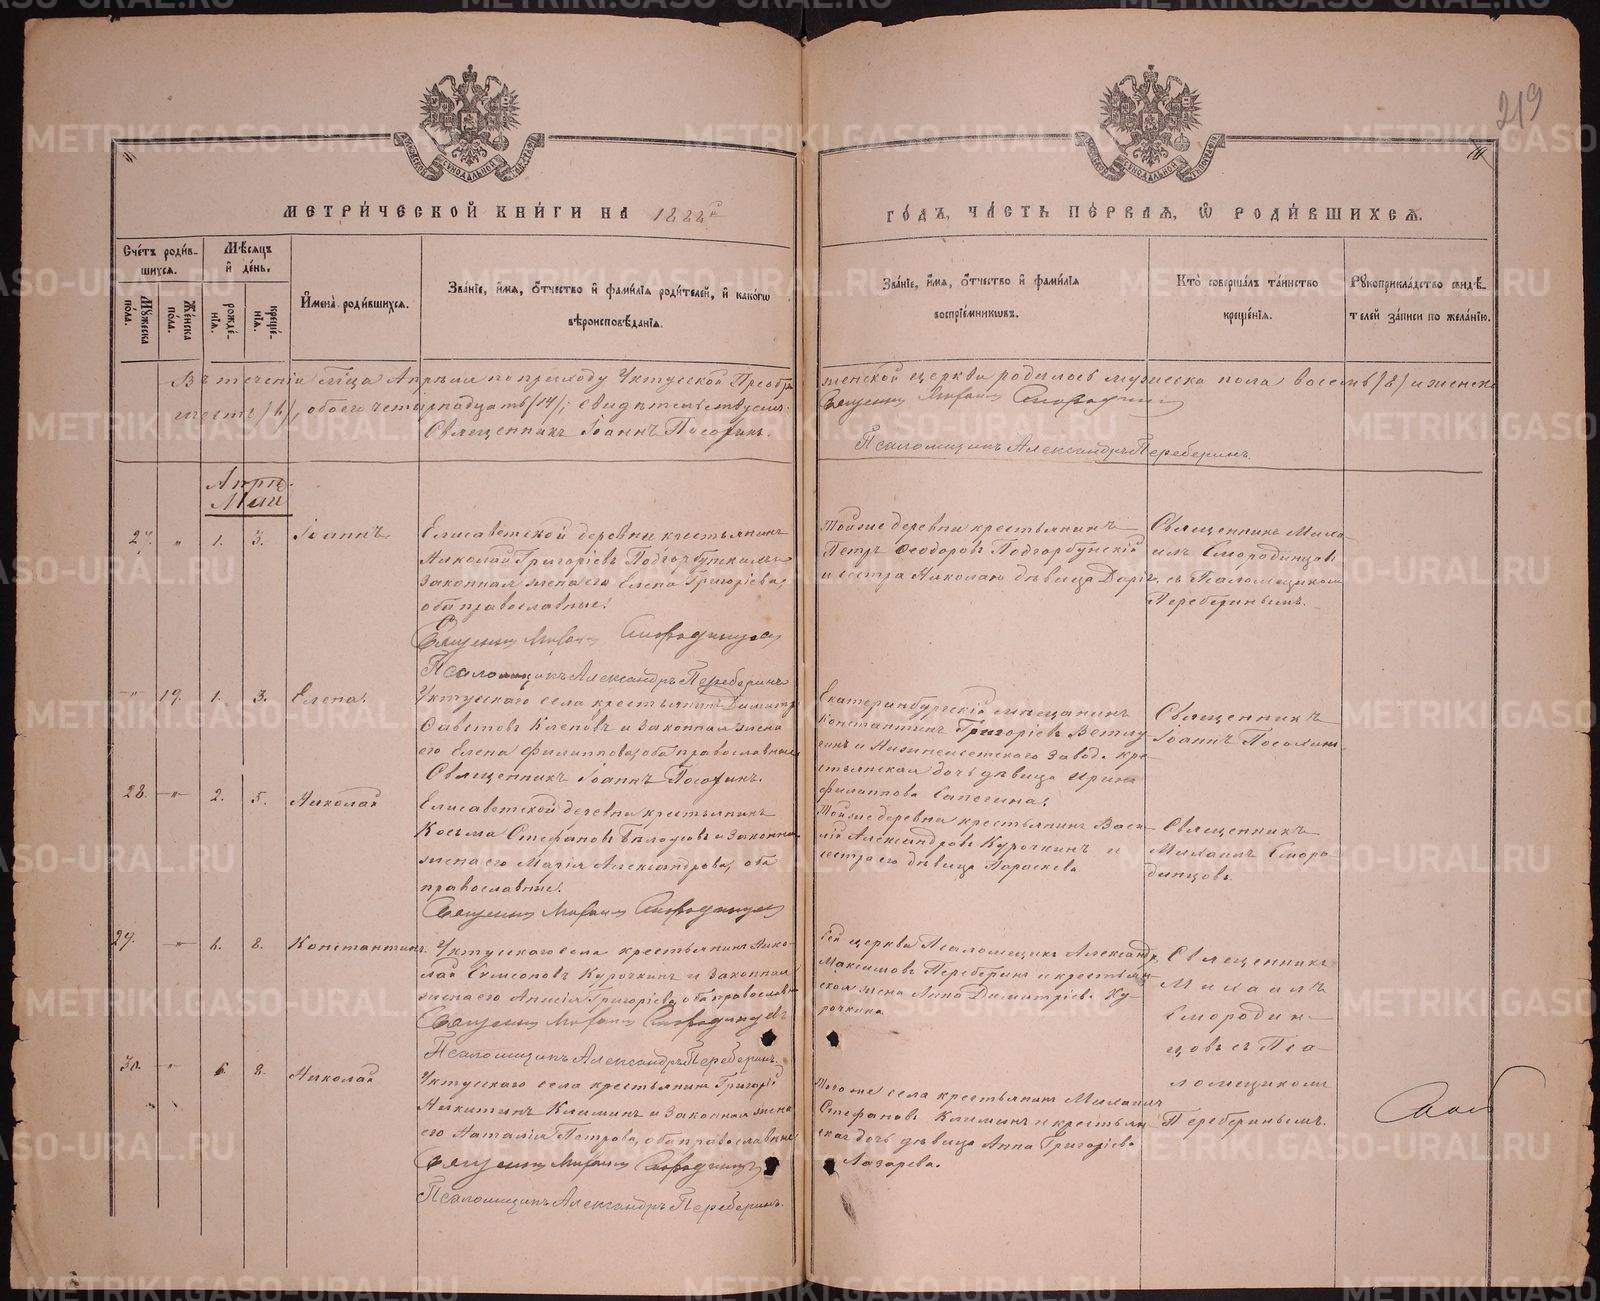 219
МЕТРИ́ЧЕСКОЙ КНИ́ГИ НА 1888 Г
ГО́ДЪ, ЧА́СТЬ ПЕ́РВАЯ, Ѡ РОДИ́ВШИХСЯ.
Сче́тъ роди́в-
шихся.
Му́жеска по́ла.
Же́нска по́ла.
Мѣ́сяцъ
и҆ де́нь.
рожде́-
нїя.
креще́-
нїя.
И҆мена̀ роди́вшихся.
Зва́нїе, и҆́мя, ѻ҆́тчество и҆ фами́лїя роди́телей, и҆ како́гѡ
вѣроисповѣ́данїя.
Зва́нїе, и҆́мя, ѻ҆́тчество и҆ фами́лїя
воспрїе́мникѡвъ.
Кто̀ соверша́лъ та́инство
креще́нїя.
Рꙋкоприкла́дство свидѣ́-
телей за́писи по жела́нїю.
Въ теченіи м-ца Апрѣля по приходу Уктусской Преобра
женской церкви родилось мужеска пола восемь /8/ и женска
шесть /6/, обоего четырнадцать /14/; свидѣтельствуемъ:
Священникъ Іоаннъ
Священникъ Михаилъ Смородинцевъ
Псаломщикъ Александръ Переберинъ.
Май
27. " 1. 3. Іоаннъ
Елисаветской деревни крестьянинъ
Николай Григоріевъ Подгорбунскій и
законная жена его Елена Григоріева,
оба православные.
Священникъ Михаилъ Смородинцевъ
Псаломщикъ Александръ Переберинъ
Тойже деревни крестьянинъ
Петръ Ѳеодоровъ Подгорбунскій
и сестра Николаю дѣвица Дарія.
Священникъ Миха-
илъ Смородинцевъ
съ Псаломщикомъ
Переберинымъ.
" 19. 1. 3. Елена.
Уктусскаго села крестьянинъ Димитрій
и законная жена
его Елена Филиппова, оба православные
Священникъ Іоаннъ
Екатеринбургскій мѣщанинъ
Константинъ Григоріевъ
и Нижнеисетскаго завода кре-
стьянская дочь дѣвица Ирина
Филиппова
Священникъ
Іоаннъ
28. " 2. 5. Николай
Елисаветской деревни крестьянинъ
Косьма Стефановъ и законная
жена его Марія Александрова, оба
православные.
Священникъ Михаилъ Смородинцевъ
Тойже деревни крестьянинъ Васи-
лій Александровъ Курочкинъ и
сестра его дѣвица Параскева
Священникъ
Михаилъ Сморо-
динцовъ.
29. " 6. 8. Константинъ.
Уктусскаго села крестьянинъ Нико-
лай Симеоновъ Курочкинъ и законная
жена его Анисія Григоріева, оба православн
Священникъ Михаилъ Смородинцевъ
Псаломщикъ Александръ Переберинъ.
церкви Псаломщикъ Александръ
Максимовъ Переберинъ и крестьян-
ская жена Анна Димитріева Ку-
рочкина
Священникъ
Михаилъ
Смородин-
цовъ съ Пса-
ломщикомъ
Переберинымъ.
30. " 6. 8. Николай
Уктусскаго села крестьянинъ Григорій
Никитинъ Климинъ и законная жена
его Наталія Петрова, оба православные
Священникъ Михаилъ Смородинцевъ
Псаломщикъ Александръ Переберинъ.
Тогоже села крестьянинъ Михаилъ
Стефановъ Климинъ и крестьян
ская дочь дѣвица Анна Григоріева
Лазарева.
METRIKI.GASO-URAL.RU